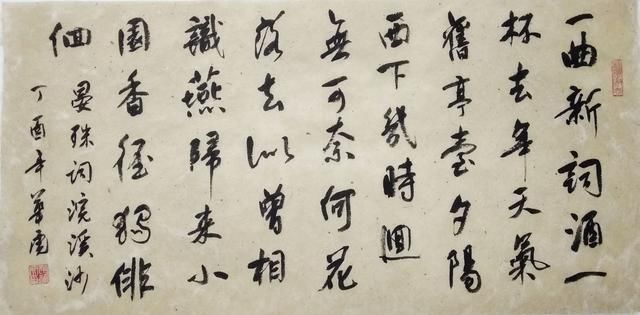 一曲新詞酒一
杯去年天氣
舊亭臺夕陽
西下幾時迴
無可奈何花
落去似曾相
識燕歸来小
園香徑獨徘
徊
晏殊词浣溪沙
丁酉年